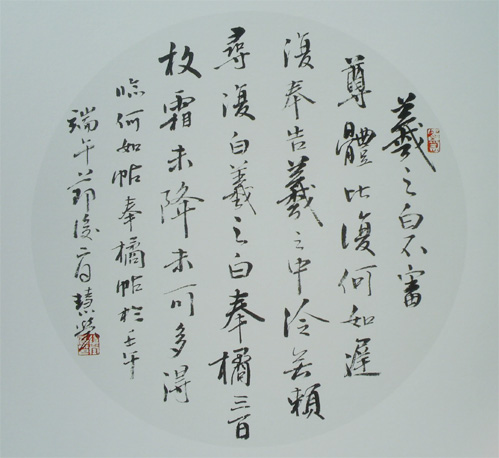 羲之白不審
尊體比復何如遲
復奉告羲之中冷無賴
尋復白羲之白奉橘三百
枚霜未降未可多得
臨何如帖奉橘帖於壬午
端午節後